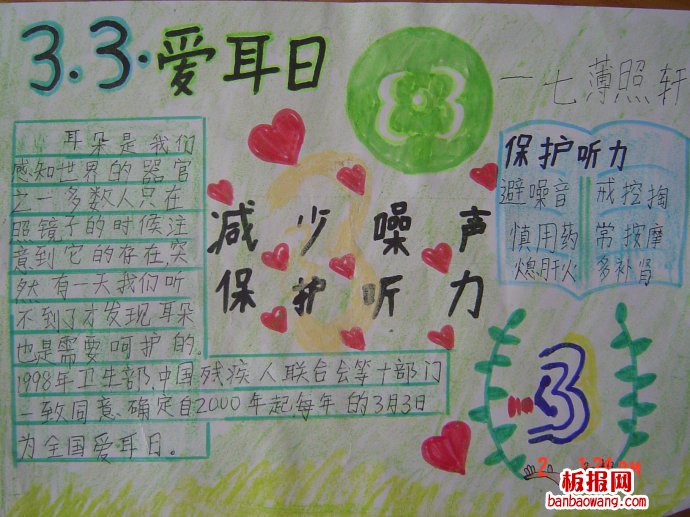 3.3·爱耳日
一七薄照轩
耳朵是我们
感知世界的器官
之一多数人只在
照镜子的时候注
意到它的存在突
然有一天我们听
不到了才发现耳朵
也是需要呵护的。
1998年卫生部、中国残疾人联合会等十部门
一致同意,确定自2000年起每年的3月3日
为全国爱耳日。
减少噪声
保护听力
保护听力
避噪音
慎用药
熄肝火
戒控掏
常按摩
多补肾
3
板报网
banbaowang.com